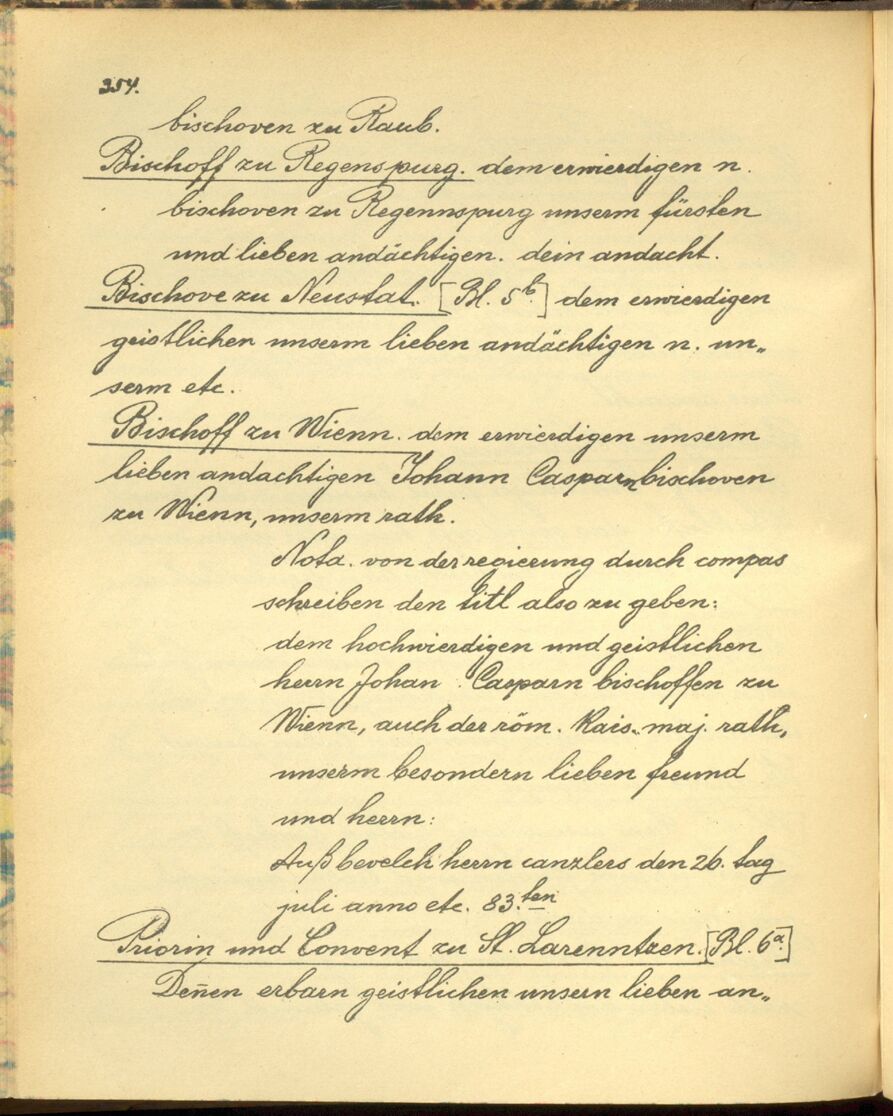 354.
bischoven zu Raab.
Bischoff zu Regenspurg. dem erwierdigen n.
bischoven zu Regennspurg unserm fürsten
und lieben andächtigen. dein andacht.
Bischove zu Neustat. [Bl. 5b.] dem erwierdigen
geistlichen unserm lieben andächtigen n. un„
serm etc.
Bischoff zu Wienn. dem erwierdigen unserm
lieben andachtigen Johann Casparn bischoven
zu Wienn, unserm rath.
Nota. von der regierung durch compas
schreiben den titl also zu geben:
dem hochwierdigen und geistlichen
herrn Johan Casparn bischoffen zu
Wienn, auch der röm. Kais. maj. rath,
unserm besondern lieben freund
und herrn:
Auß bevelch herrn canzlers den 26. tag
juli anno etc. 83.ten
Priorin und Convent zu St. Larenntzen. [Bl. 6a.]
Den̄en erbarn geistlichen unsern lieben an„